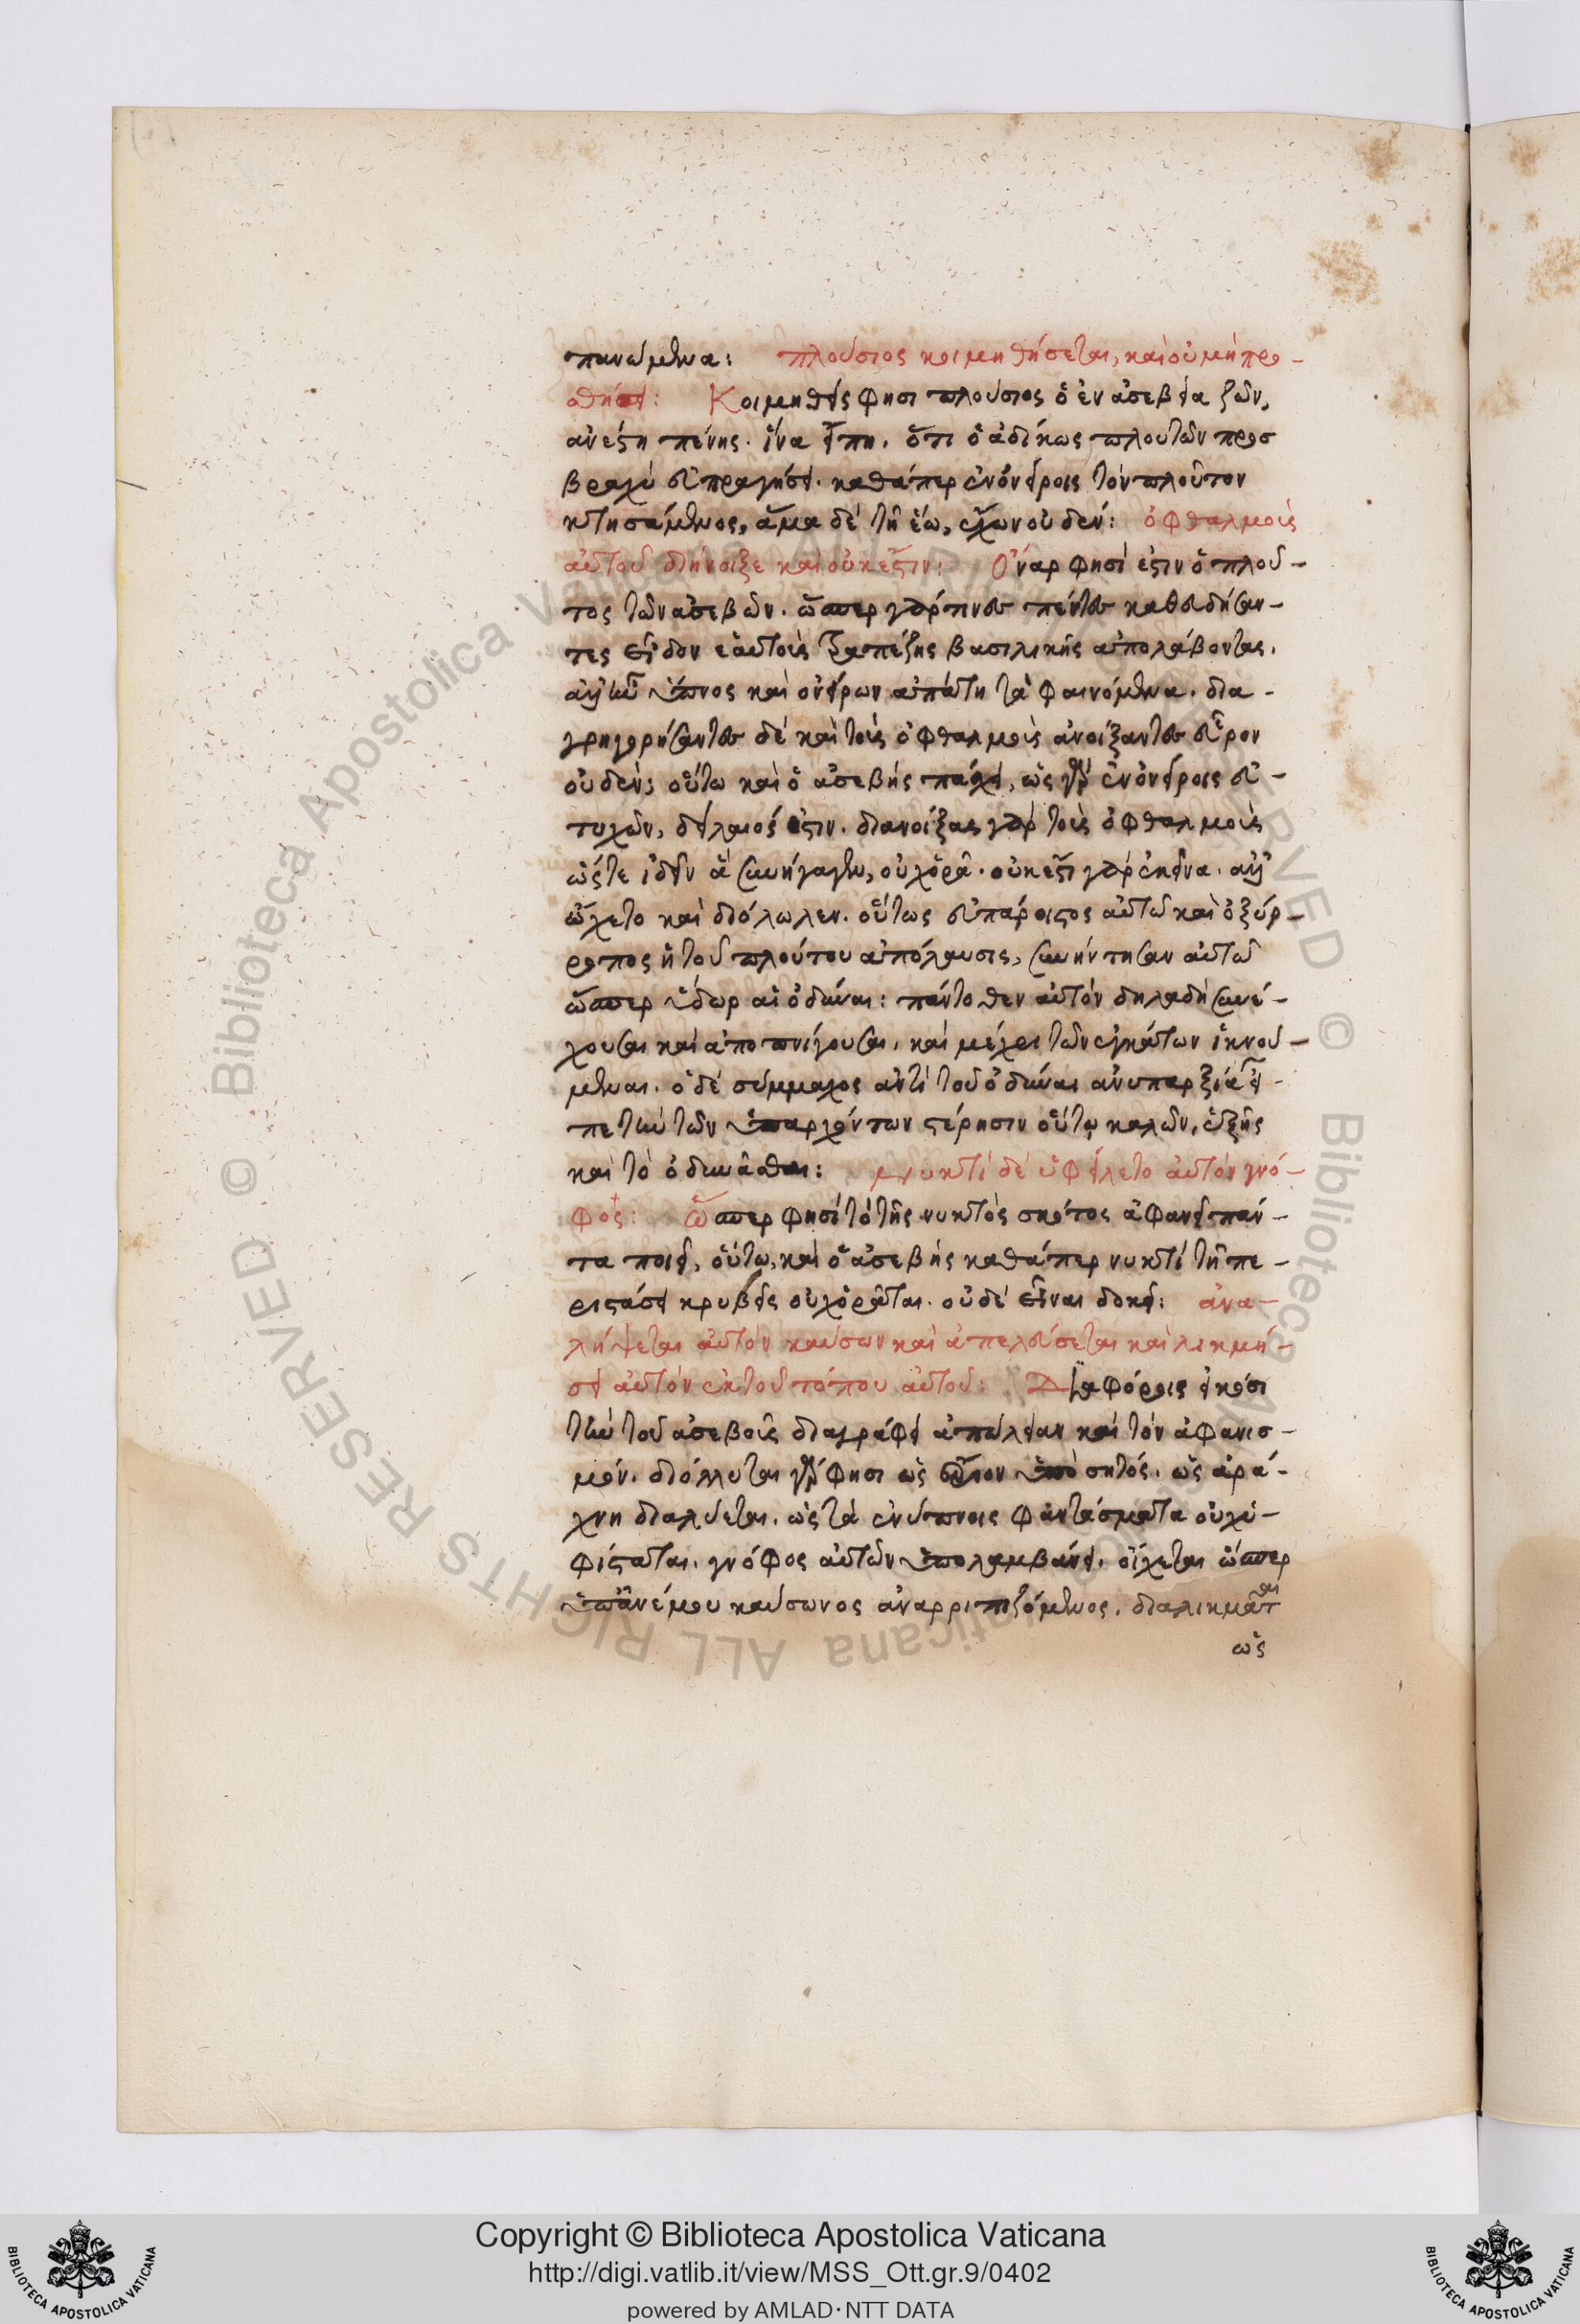 πανώμενα: πλούσιος κοιμηθήσεται, καὶ οὐ μὴ προ-
θήσει: Κοιμηθεὶς φησι πλούσιος ὁ ἐν ἀσεβεία ζῶν,
ἀνέστη πένης. ἵνα εἴπη. ὅτι ὁ ἀδίκως πλουτῶν προσ
βραχὺ εὐπραγήσει. καθάπερ ἐν ὀνείροις τὸν πλοῦτον
κτησάμενος, ἅμα δὲ τῆ ἕω, ἔχων οὐδέν: ὀφθαλμοὺς
αὐτοῦ διήνοιξε καὶ οὐκ ἔστιν: Ὄναρ φησί ἐστιν ὁ πλοῦ-
τος τῶν ἀσεβῶν. ὥσπερ γάρ τινες πένητες καθευδήσαν-
τες εἶδον ἑαυτοὺς τραπέζης βασιλικῆς ἀπολάβοντας.
ἀλλ' ἦν ὕπνος καὶ ὀνείρων ἀπάτη τὰ φαινόμενα. δια-
γρηγορήσαντες δὲ καὶ τοὺς ὀφθαλμοὺς ἀνοίξαντες εὗρον
οὐδέν, οὕτω καὶ ὁ ἀσεβὴς πάσχει, ὡς γὰρ ἐν ὀνείροις εὐ-
τυχῶν, δείλαιός ἐστιν. διανοίξας γὰρ τοὺς ὀφθαλμοὺς
ὥστε ἰδεῖν ἃ συνήγαγεν, οὐχ ὁρᾶ. οὐκ ἔστι γὰρ ἐκεῖνα. ἀλλ'
ὤχετο καὶ διόλωλεν. οὕτως εὐπάροιστος αὐτῶ καὶ ὀξύρ-
ροπος ἡ τοῦ πλούτου ἀπόλαυσις, συνήντησαν αὐτῶ
ὥσπερ ὕδωρ αἱ ὀδύναι: πάντοθεν αὐτὸν δηλαδὴ συνέ-
χουσαι καὶ ἀποπνίγουσαι, καὶ μέχρι τῶν ἐγκάτων ἱκνού-
μεναι. ὁ δὲ σύμμαχος ἀντὶ τοῦ ὀδύναι ἀνυπαρξία εἶ-
πε τὴν τῶν ὑπαρχόντων στέρησιν οὕτω καλῶν, ἐξ ἧς
καὶ τὸ ὀδυνᾶσθαι: νυκτὶ δὲ ὑφείλετο αὐτὸν γνό-
φος: Ὥσπερ φησὶ τὸ τῆς νυκτὸς σκότος ἀφανῆ πάν-
τα ποιεῖ, οὕτω, καὶ ὁ ἀσεβὴς καθάπερ νυκτὶ τῆ πε-
ριστάσει κρυβεὶς οὐχ ὁρᾶται. οὐδὲ εἶναι δοκεῖ: ἀνα-
λήψεται αὐτὸν καύσων καὶ ἀπελεύσεται καὶ λικμή-
σει αὐτὸν ἐκ τοῦ τόπου αὐτοῦ: Διαφόροις εἰκόσι
τὴν τοῦ ἀσεβοῦς διαγράφει ἀπώλειαν καὶ τὸν ἀφανισ-
μόν. διόλλυται γάρ φησι ὡς ἱμάτιον ὑπὸ σητός. ὡς ἀρά-
χνη διαλύεται. ὡς τὰ ἐνύπνοις φαντάσματα οὐχ ὑ-
φίσταται. γνόφος αὐτῶν ὑπολαμβάνει. οἴχεται ὥσπερ
ὑπ' ἀνέμου καύσωνος ἀναρριπιζόμενος. διαλικμᾶται
ὡς
Copyright © Biblioteca Apostolica Vaticana
http://digi.vatlib.it/view/MSS_Ott.gr.9/0402
powered by AMLAD·NTT DATA